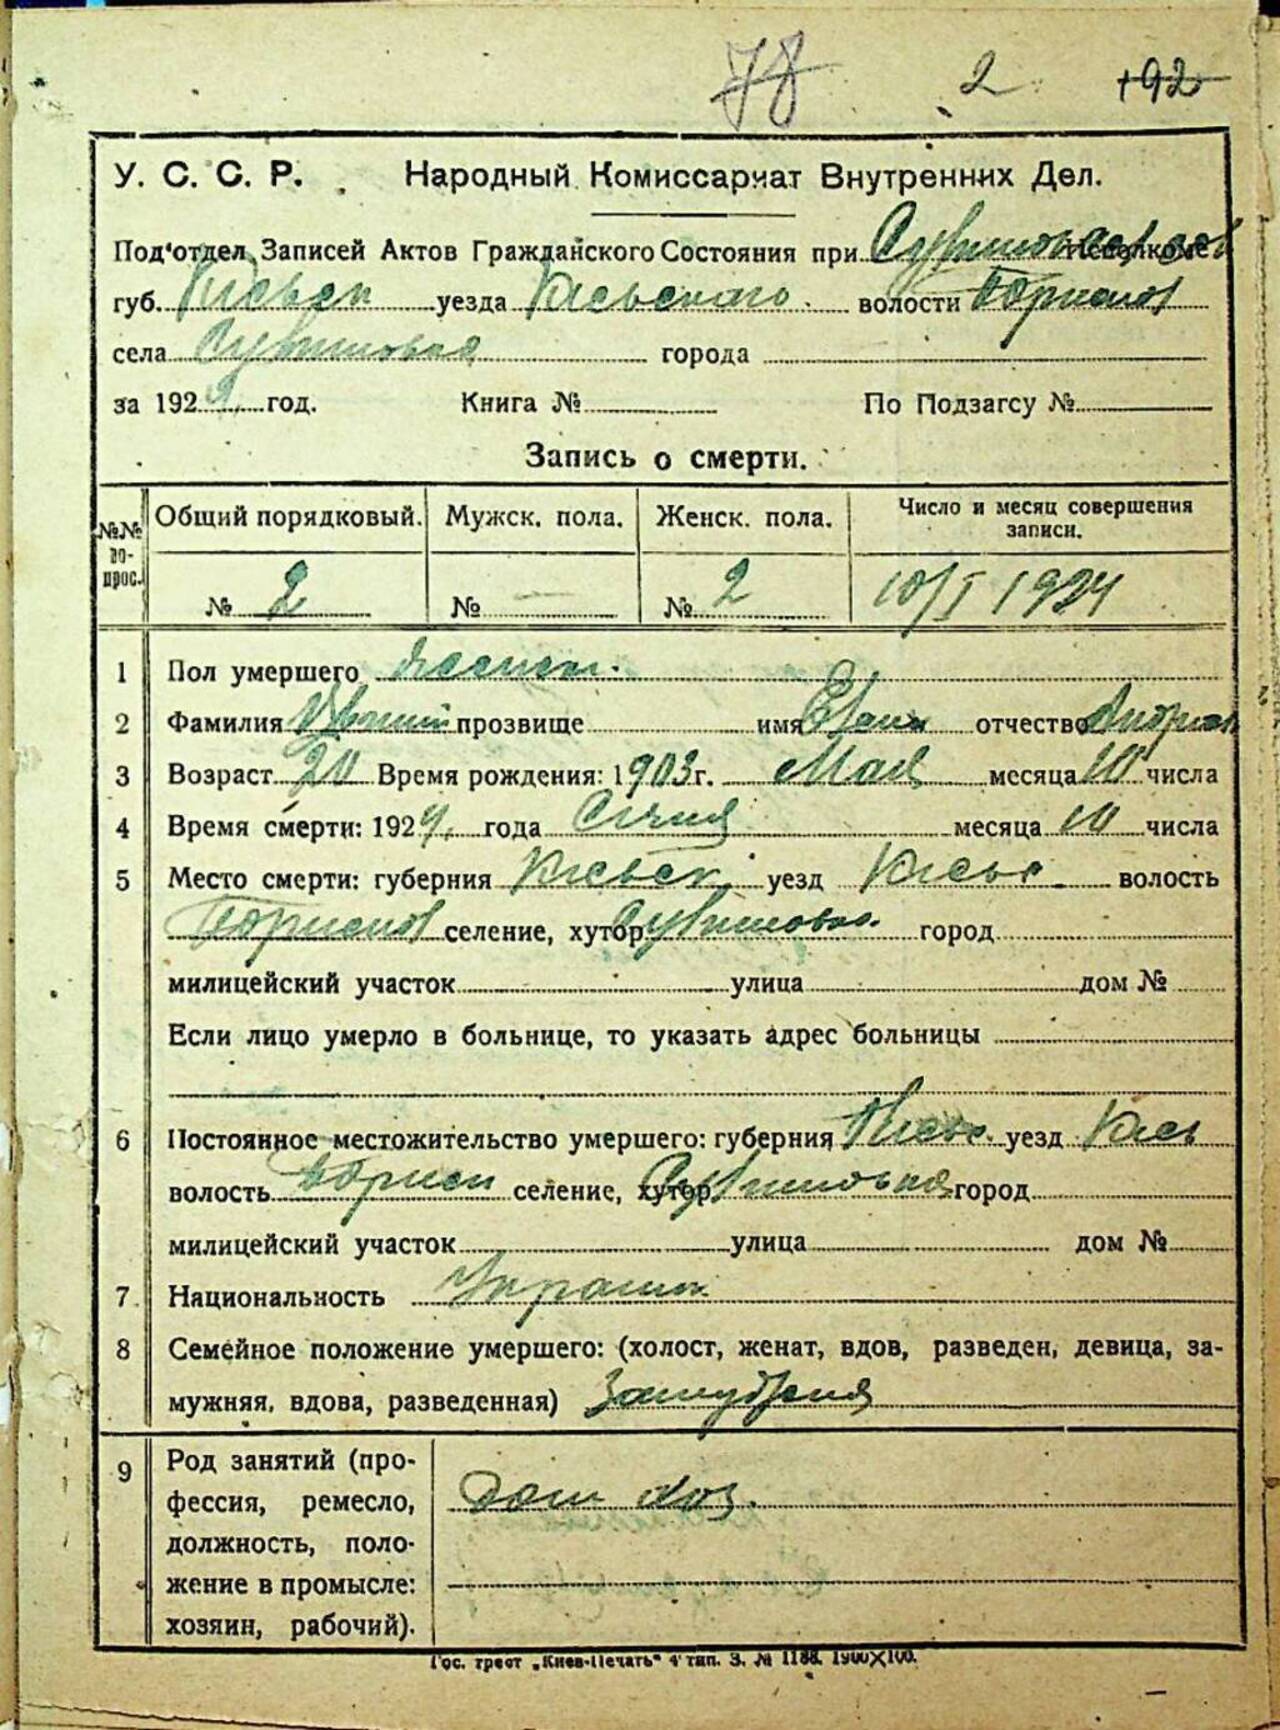 78 2 192
У. С. С. Р. Народный Комиссариат Внутренних Дел.
Под'отдел Записей Актов Гражданского Состояния при
губ. Киевск уезда Киевского волости
села города
за 1924 год. Книга № По Подзагсу №
Запись о смерти.
№№ вопрос. Общий порядковый. Мужск. пола. Женск. пола. Число и месяц совершения записи.
№ 2 № — № 2 10/I 1924
1 Пол умершего
2 Фамилия прозвище имя отчество
3 Возраст 20 Время рождения: 1903г. Мая месяца 10 числа
4 Время смерти: 1924 года Січня месяца 10 числа
5 Место смерти: губерния Киевск уезд Киевс волость
селение, хутор город
милицейский участок улица дом №
Если лицо умерло в больнице, то указать адрес больницы
6 Постоянное местожительство умершего: губерния Киевс. уезд Киев
волость селение, хутор город
милицейский участок улица дом №
7 Национальность
8 Семейное положение умершего: (холост, женат, вдов, разведен, девица, за-
мужняя, вдова, разведенная) Замужня
9 Род занятий (про-
фессия, ремесло, Дом хоз.
должность, поло-
жение в промысле:
хозяин, рабочий).
Гос. трест „Киев-Печать" 4 тип. З. № 1188. 1900X100.